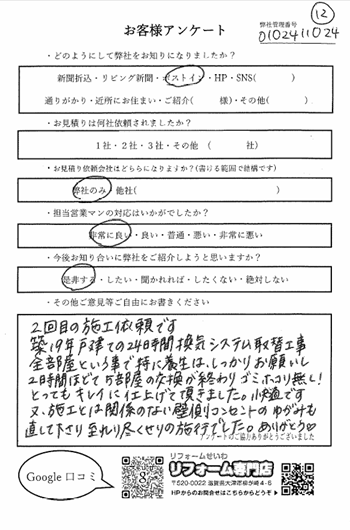 お客様アンケート
弊社管理番号
⑫
0102411024
・どのようにして弊社をお知りになりましたか？
新聞折込・リビング新聞・ポストイン・HP・SNS(　　　)
通りがかり・近所にお住まい・ご紹介(　　　様)・その他(　　　)
・お見積りは何社依頼されましたか？
1社・2社・3社・その他　(　　　社)
・お見積り依頼会社はどちらになりますか？(書ける範囲で結構です)
弊社のみ・他社(　　　)
・担当営業マンの対応はいかがでしたか？
非常に良い・良い・普通・悪い・非常に悪い
・今後お知り合いに弊社をご紹介しようと思いますか？
是非する・したい・聞かれれば・したくない・絶対しない
・その他ご意見等ご自由にお書きください
2回目の施工依頼です
築19年戸建ての24時間換気システム取替工事
全部屋という事で特に養生は、しっかりお願いし
2時間ほどで5部屋の交換が終わりゴミホコリ無し!
とってもキレイに仕上げて頂きました。快適です
又、施工とは関係のない壁側コンセントのゆがみも
直して下さり至れり尽くせりの施行でした。ありがとう♡
アンケートのご協力ありがとうございました
Google口コミ
リフォームせいわ
リフォーム専門店
〒520-0022 滋賀県大津市柳が崎4-5
HPからのお問合せはこちらからどうぞ